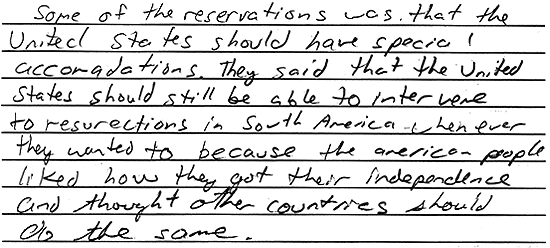 Some of the reservations was that the
United States should have special
accomadations. They said that the United
States should still be able to intervene
to resurections in South America whenever
they wanted to because the american people
liked how they got their independence
and thought other countries should
do the same.